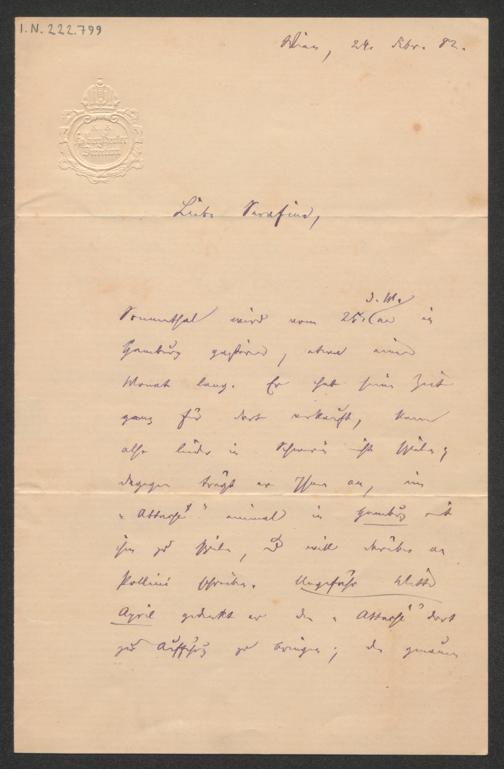 I.N. 222.799
Wien, 24. Febr. 82.
Liebe Serafine,
d. Mts
Sonnenthal wird vom 25. an in
Hamburg gastiren, etwa einen
Monat lang. Er hat seine Zeit
ganz für dort verkauft, kann
also leider in Schwerin nicht spielen;
dagegen trägt er Ihnen an, im
„Attaché" einmal in Hamburg mit
ihm zu spielen, & will darüber an
Pollini schreiben. Ungefähr Mitte
April gedenkt er den „Attaché" dort
zur Aufführung zu bringen; den genauen